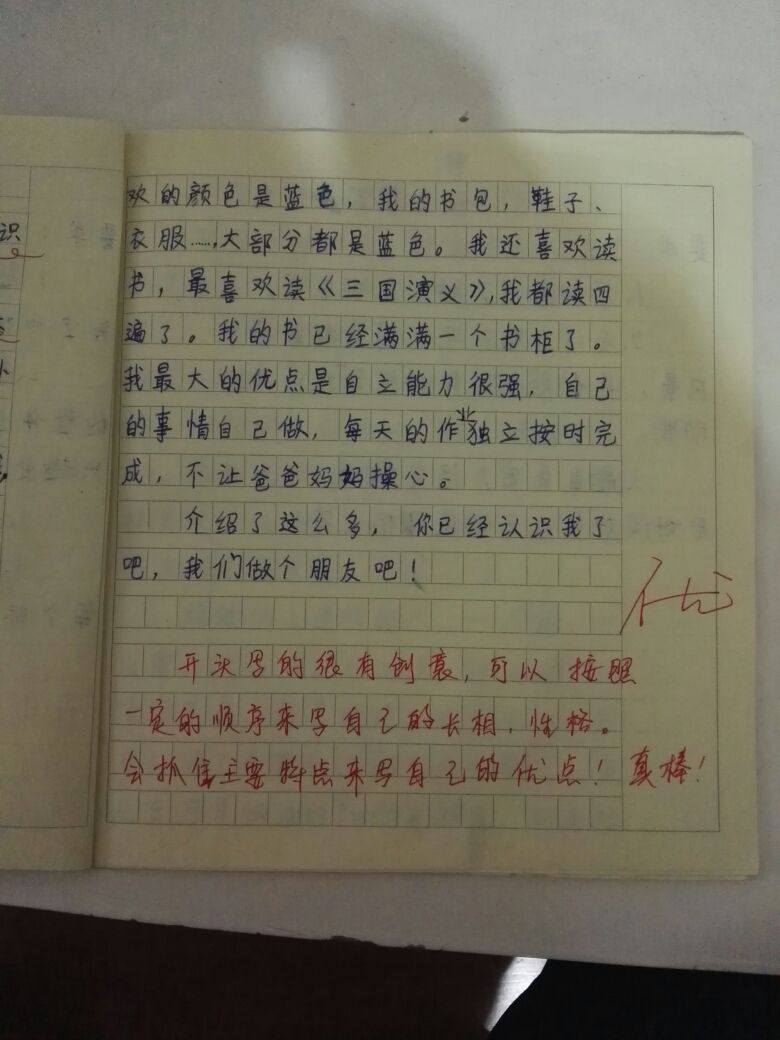 识
欢的颜色是蓝色，我的书包，鞋子、
衣服……，大部分都是蓝色。我还喜欢读
书，最喜欢读《三国演义》，我都读四
遍了。我的书已经满满一个书柜了。
我最大的优点是自立能力很强，自己
的事情自己做，每天的作业独立按时完
成，不让爸爸妈妈操心。
介绍了这么多，你已经认识我了
吧，我们做个朋友吧！
优
开头写的很有创意，可以按照
一定的顺序来写自己的长相，性格。
会抓住主要特点来写自己的优点！真棒！